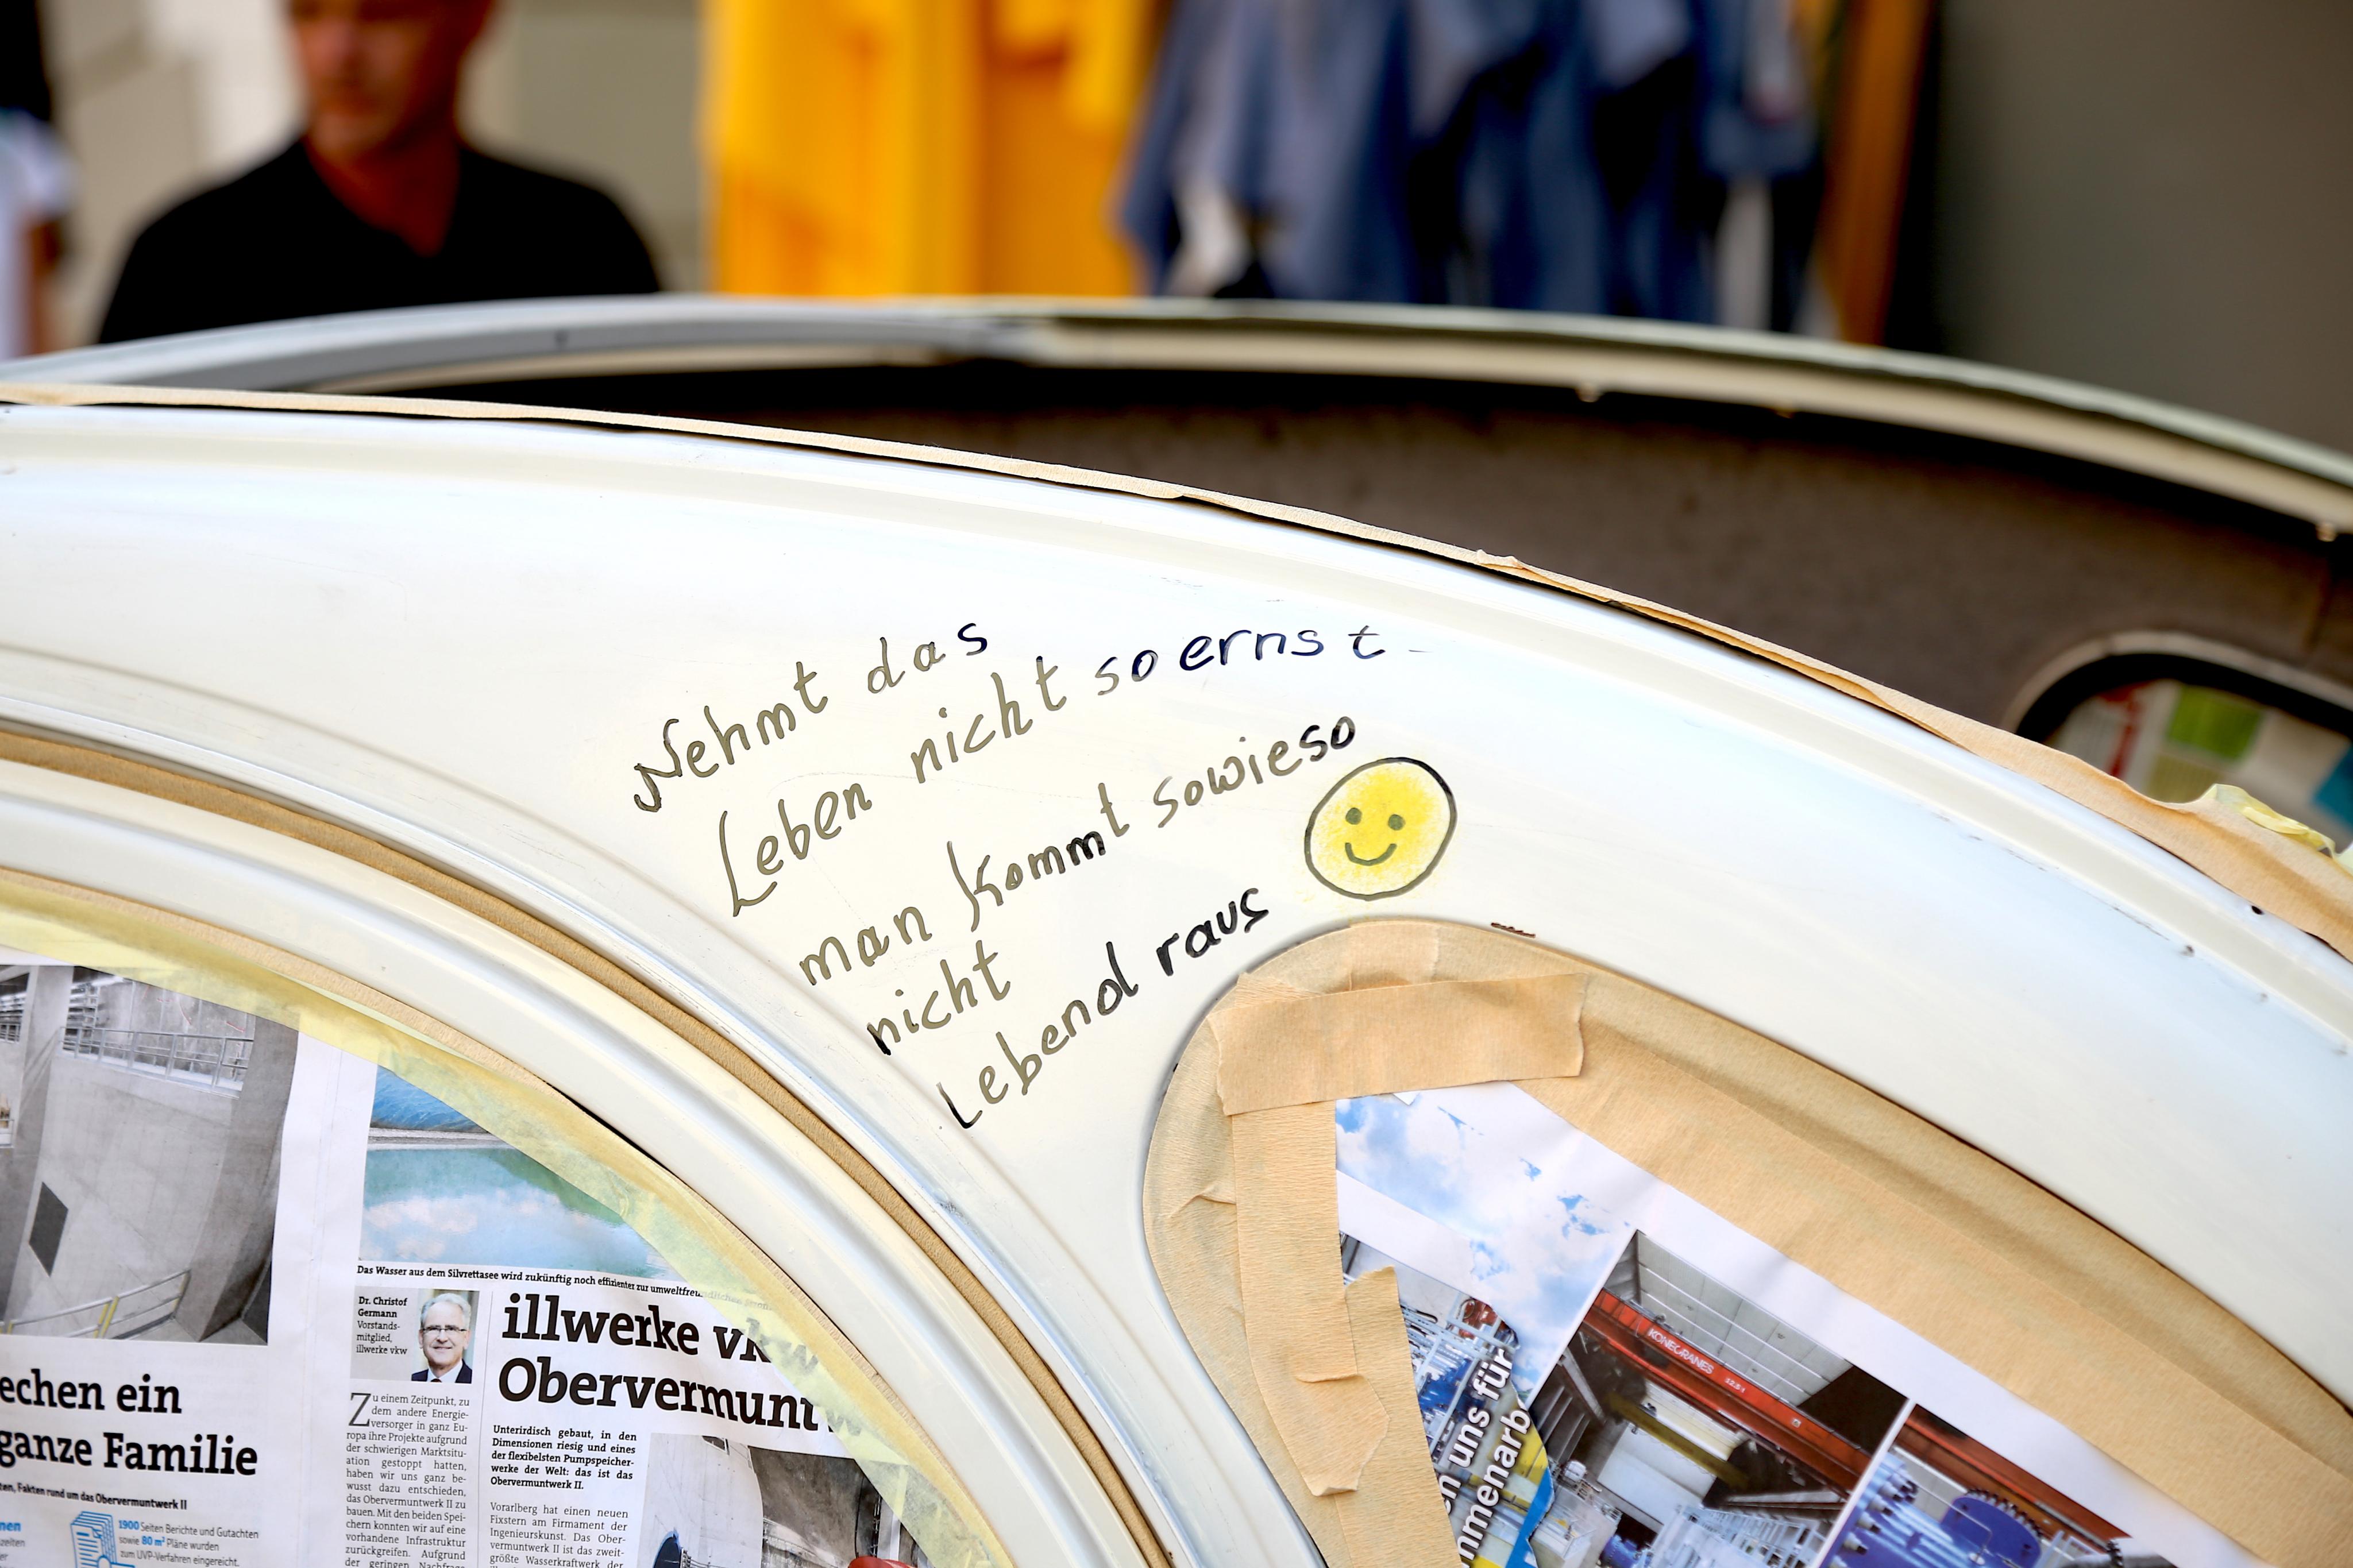 Nehmt das
Leben nicht so ernst
man kommt sowieso
nicht
Lebend raus
echen ein
ganze Familie
ten, Fakten rund um das Obervermuntwerk II
nen
zeiten
1900 Seiten Berichte und Gutachten
sowie 80 m² Pläne wurden
zum UVP-Verfahren eingereicht.
Das Wasser aus dem Silvrettasee wird zukünftig noch effizienter zur umweltfreundlichen
Dr. Christof
Germann
Vorstands-
mitglied,
illwerke vkw
Zu einem Zeitpunkt, zu
dem andere Energie-
versorger in ganz Eu-
ropa ihre Projekte aufgrund
der schwierigen Marktsitu-
ation gestoppt hatten,
haben wir uns ganz be-
wusst dazu entschieden,
das Obervermuntwerk II zu
bauen. Mit den beiden Spei-
chern konnten wir auf eine
vorhandene Infrastruktur
zurückgreifen. Aufgrund
der geringen Nachfrag
illwerke vkw
Obervermunt
Unterirdisch gebaut, in den
Dimensionen riesig und eines
der flexibelsten Pumpspeicher-
werke der Welt: das ist das
Obervermuntwerk II.
Vorarlberg hat einen neuen
Fixstern am Firmament der
Ingenieurskunst. Das Ober-
vermuntwerk II ist das zweit-
größte Wasserkraftwerk der
KONECRANES 12.5 t
n uns für
mmenarb